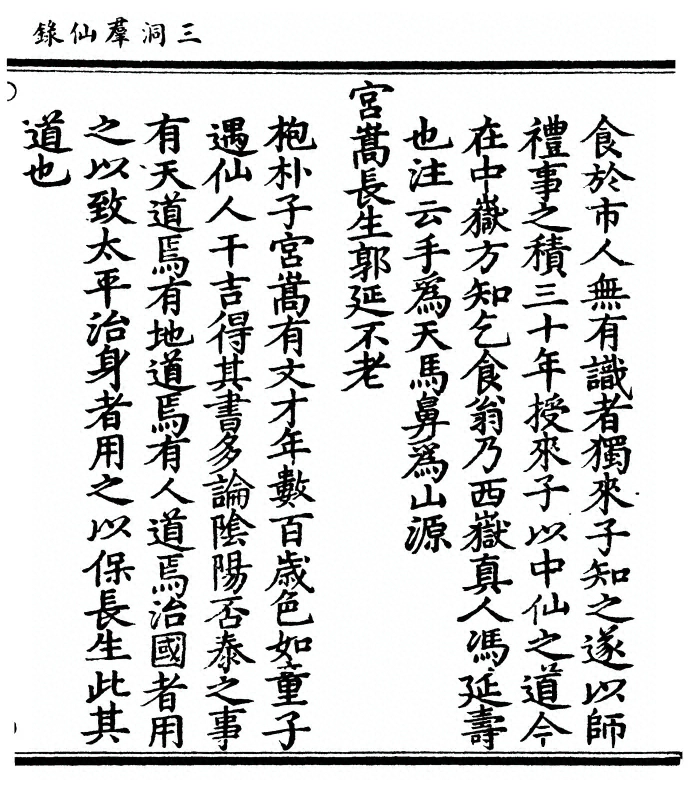 三洞羣仙錄
食於市人無有識者獨來子知之遂以師
禮事之積三十年授來子以中仙之道今
在中嶽方知乞食翁乃西嶽真人馮延壽
也注云手爲天馬鼻爲山源
宮嵩長生郭延不老
枹朴子宮嵩有文才年數百歲色如童子
遇仙人干吉得其書多論陰陽否泰之事
有天道焉有地道焉有人道焉治國者用
之以致太平治身者用之以保長生此其
道也